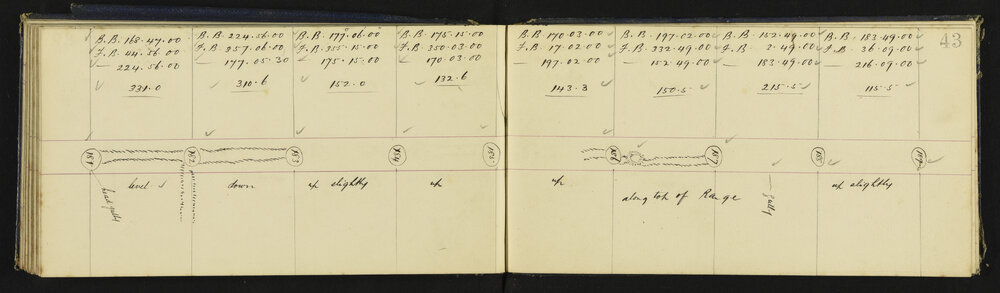 43
B.B. 168.47.00
F.B. 44.56.00
— 224.56.00
331.0
B.B. 224.56.00
F.B. 357.06.00
— 177.05.30
310.6
B.B. 177.06.00
F.B. 355.15.00
— 175.15.00
152.0
B.B. 175.15.00
F.B. 350.03.00
— 170.03.00
132.6
B.B. 170.03.00
F.B. 17.02.00
— 197.02.00
143.3
B.B. 197.02.00
F.B. 332.49.00
— 152.49.00
150.5
B.B. 152.49.00
F.B. 3.49.00
— 183.49.00
215.5
B.B. 183.49.00
F.B. 36.09.00
— 216.09.00
115.5
181
182
183
184
185
186
187
188
189
level
down
up slightly
up
up
along top of Range
gully
up slightly
head gully